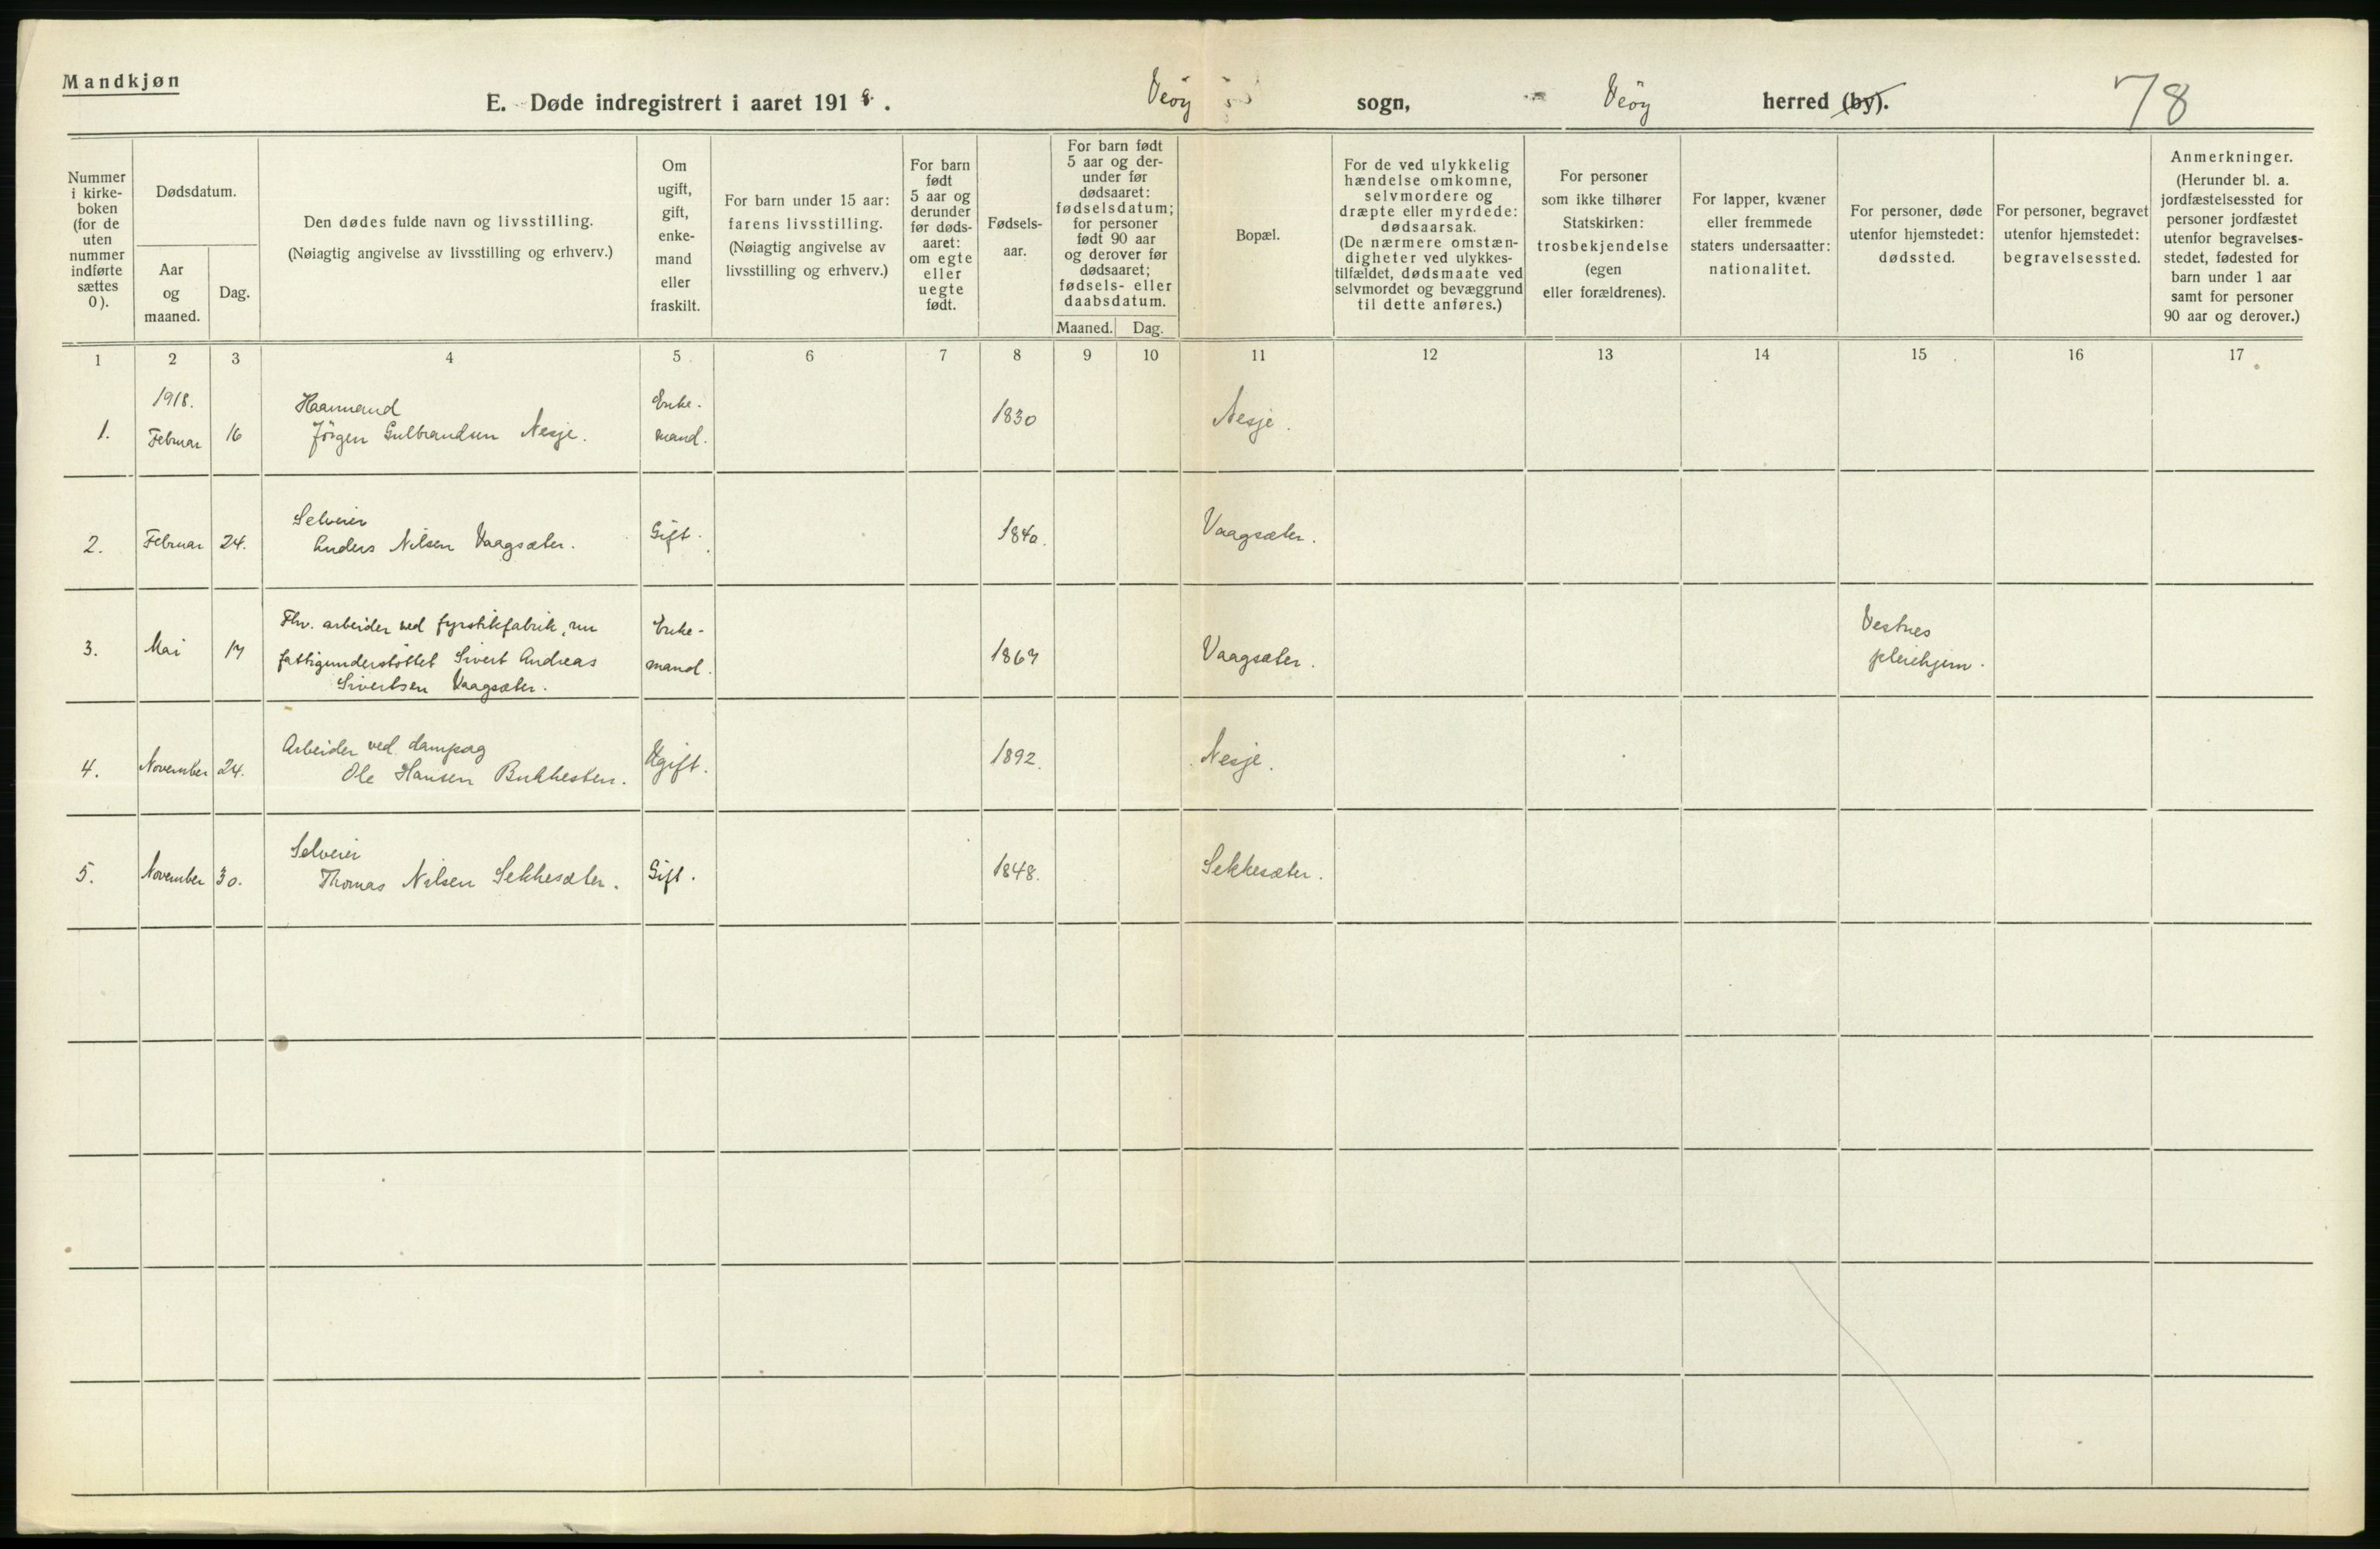 Mandkjøn
E. Døde indregistrert i aaret 1918. Veöy sogn, Veöy herred (by). 78
Nummer i kirke- boken (for de uten nummer indførte sættes 0).
Dødsdatum.
Aar og maaned.
Dag.
Den dødes fulde navn og livsstilling.
(Nøiagtig angivelse av livsstilling og erhverv.)
Om ugift, gift, enke- mand eller fraskilt.
For barn under 15 aar: farens livsstilling. (Nøiagtig angivelse av livsstilling og erhverv.)
For barn født 5 aar og derunder før døds- aaret: om egte eller uegte født.
Fødsels- aar.
For barn født 5 aar og der- under før dødsaaret: fødselsdatum; for personer født 90 aar og derover før dødsaaret; fødsels- eller daabsdatum.
Maaned. Dag.
Bopæl.
For de ved ulykkelig hændelse omkomne, selvmordere og dræpte eller myrdede: dødsaarsak. (De nærmere omstæn- digheter ved ulykkes- tilfældet, dødsmaate ved selvmordet og bevæggrund til dette anføres.)
For personer som ikke tilhører Statskirken: trosbekjendelse (egen eller forældrenes).
For lapper, kvæner eller fremmede staters undersaatter: nationalitet.
For personer, døde utenfor hjemstedet: dødssted.
For personer, begravet utenfor hjemstedet: begravelsessted.
Anmerkninger. (Herunder bl. a. jordfæstelsessted for personer jordfæstet utenfor begravelses- stedet, fødested for barn under 1 aar samt for personer 90 aar og derover.)
1 2 3 4 5 6 7 8 9 10 11 12 13 14 15 16 17
1918. Kaarmand Enke-
1. Februar 16 Jörgen Gulbrandsen Nesje. mand. 1830 Nesje.
Selveier
2. Februar 24. Anders Nilsen Vaagsæter. Gift. 1840. Vaagsæter.
Fhv. arbeider ved fyrstikfabrik, nu Enke- Vestnes
3. Mai 17 fattigunderstöttet Sivert Andreas mand. 1867 Vaagsæter. pleiehjem.
Sivertsen Vaagsæter.
Arbeider ved dampsag
4. November 24. Ole Hansen Bukhesten. Ugift. 1892. Nesje.
Selveier
5. November 30. Thomas Nilsen Sekkesæter. Gift. 1848. Sekkesæter.